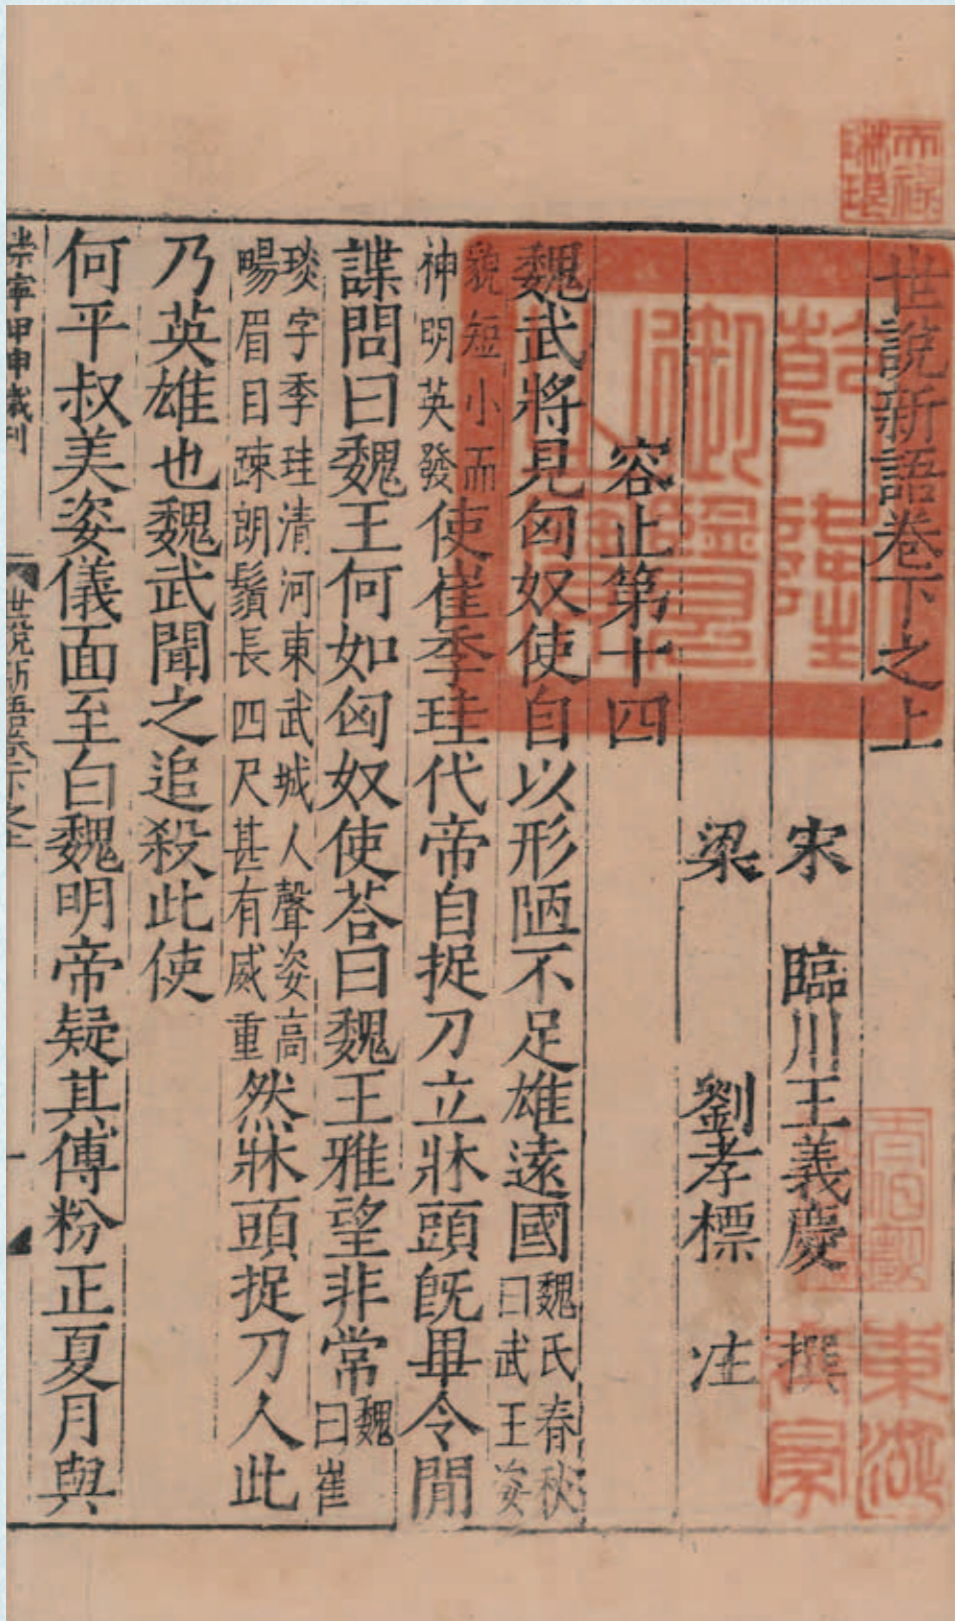 天祿琳琅
乾隆御覽之寶
世說新語卷下之上
宋 臨川王義慶 撰
梁 劉孝標 注
容止第十四
魏武將見匈奴使自以形陋不足雄遠國魏氏春秋曰武王姿
貌短小而神明英發使崔季珪代帝自捉刀立牀頭旣畢令閒
諜問曰魏王何如匈奴使荅曰魏王雅望非常魏曰崔
琰字季珪清河東武城人聲姿高暢眉目疎朗鬚長四尺甚有威重然牀頭捉刀人此
乃英雄也魏武聞之追殺此使
何平叔美姿儀面至白魏明帝疑其傅粉正夏月與
崇寧甲申歲刊
世說新語卷下之上 一